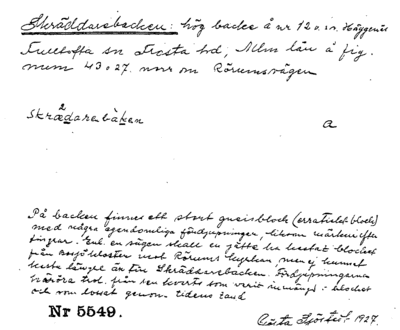 Skräddarebacken: hög backe å nr 12 o. in. Häggenäs
Tullstofta sn Frosta hd, Mlm län å fig.
num 43 o 27. norr om Rörumsvägen
2
skrædarebàken a
På backen finnes ett stort gneisblock (erratiskt block)
med några egendomliga fördjupningar, liksom märken efter
fingrar. Enl. en sägen skall en jätte ha kastat blocket
från Bosjökloster mot Rörums kyrkan, men ej hunnit
kasta längre än till Skräddarebacken. Fördjupningarna
härröra trol. från en kvarts som varit inmängd i blocket
och som lossat genom tidens tand
Nr 5549.
Gösta Sjöstedt. 1927.